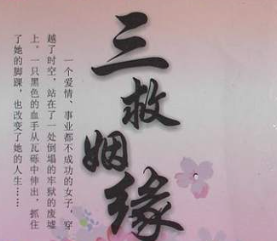 三救姻缘
一个爱情、事业都不成功的女子，穿
越了时空，站在了一处倒塌的牢狱的废墟
上。一只黑色的血手从瓦砾中伸出，抓住
了她的脚踝，也改变了她的人生……